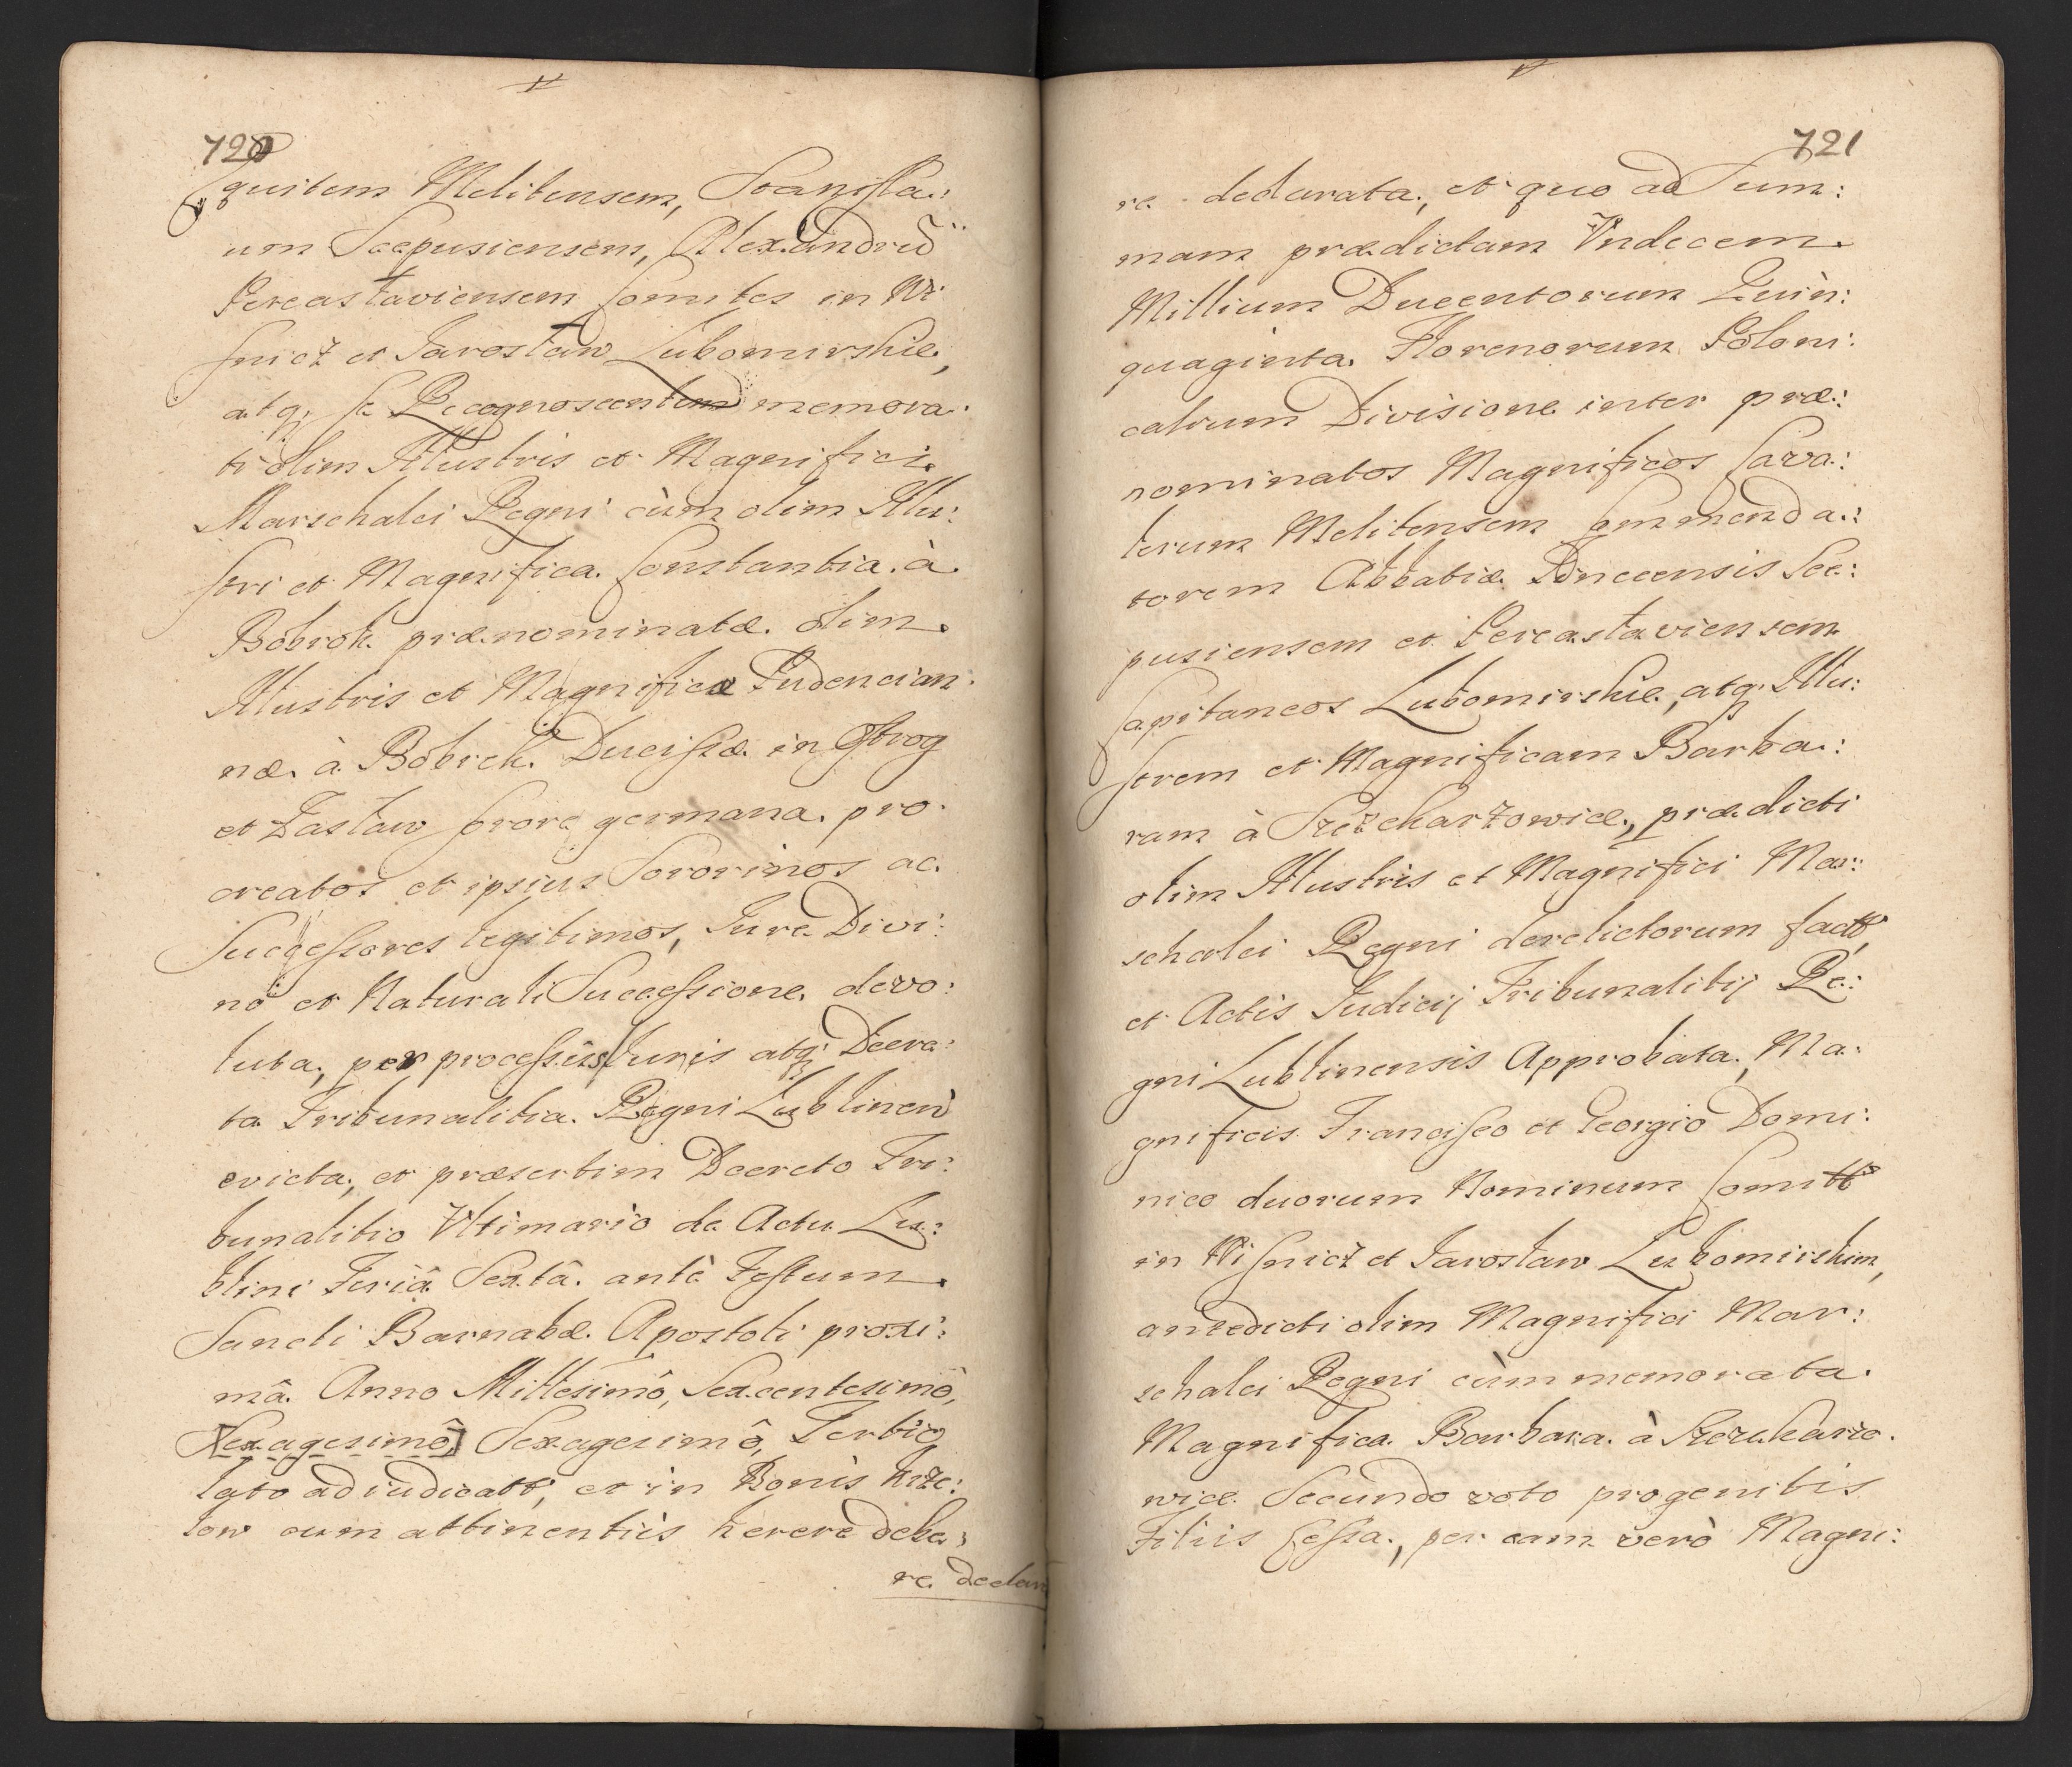 720
Equitem Melitensem, Stanisla:
um Scepusiensem, Alexandrū
Pereaslaviensem Comites in Wi
snicz et Jaroslaw Lubomirskie,
atq; se Recognoscentem memora:
ti olim Illustris et Magnifici
Marschalci Regni cùm olim Illu:
stri et Magnifica Constantia à
Bobrek prænominatæ olim
Illustris et Magnificæ Pudencian:
næ à Bobrek Ducissæ in Ostrog
et Zaslaw sorore germana pro:
creatos et ipsius Sororinos ac
Successores legitimos, Jure Divi:
nô et Naturali Successione devo:
luta, per processûs Juris atq; Decre:
ta Tribunalitia Regni Lublinen̄
evicta, et præsertim Decreto Tri:
bunalitio Ultimario de Actu Lu:
blini Feriâ Sextâ antè Festum
Sancti Barnabæ Apostoli proxi:
mâ Anno Millesimô, Sexcentesimô,
[Sexagesimô] Sexagesimô, Tertio
lato adiudicatt, et in Bonis Krze:
low cum attinentiis hærere debe:
re declara
721
re declarata, et quo ad Sum:
mam prædictam Undecem
Millium Ducentorum Quin:
quaginta Florenorum Poloni:
calium Divisione inter præ:
nominatos Magnificos Cava:
lerum Melitensem Commenda:
torem Abbatiæ Tynecensis Sce:
pusiensem et Pereaslaviensem
Capitaneos Lubomirskie, atq; Illu:
strem et Magnificam Barba:
ram à Szczekarzowice, prædicti
olim Illustris et Magnifici Mar:
schalci Regni derelictorum fact,
et Actis Judicij Tribunalitij Re:
gni Lublinensis Approbata, Ma:
gnificis Francisco et Georgio Domi:
nico duorum Nominum Comitt
in Wisnicz et Jaroslaw Lubomirskim,
antedicti olim Magnifici Mar:
schalci Regni cùm memorata
Magnifica Barbara à Szczekarzo:
wice Secundo voto progenitis
Filiis Cessa, per eam verò Magni: